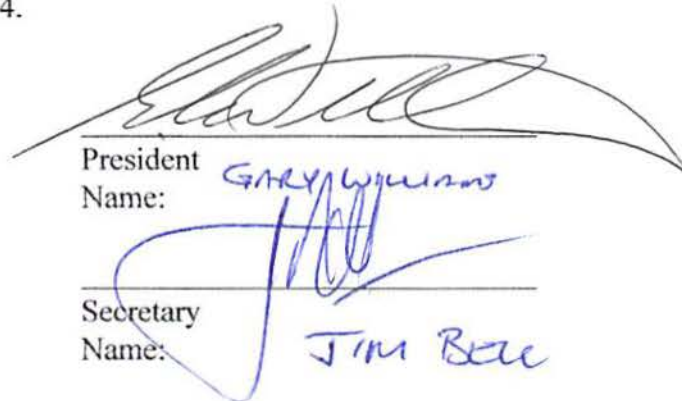 4.
President
Name: GARY WILLIAMS
Secretary
Name: JIM BELL